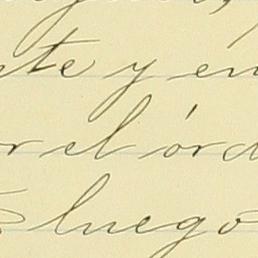 nte y en
or el órd
luego